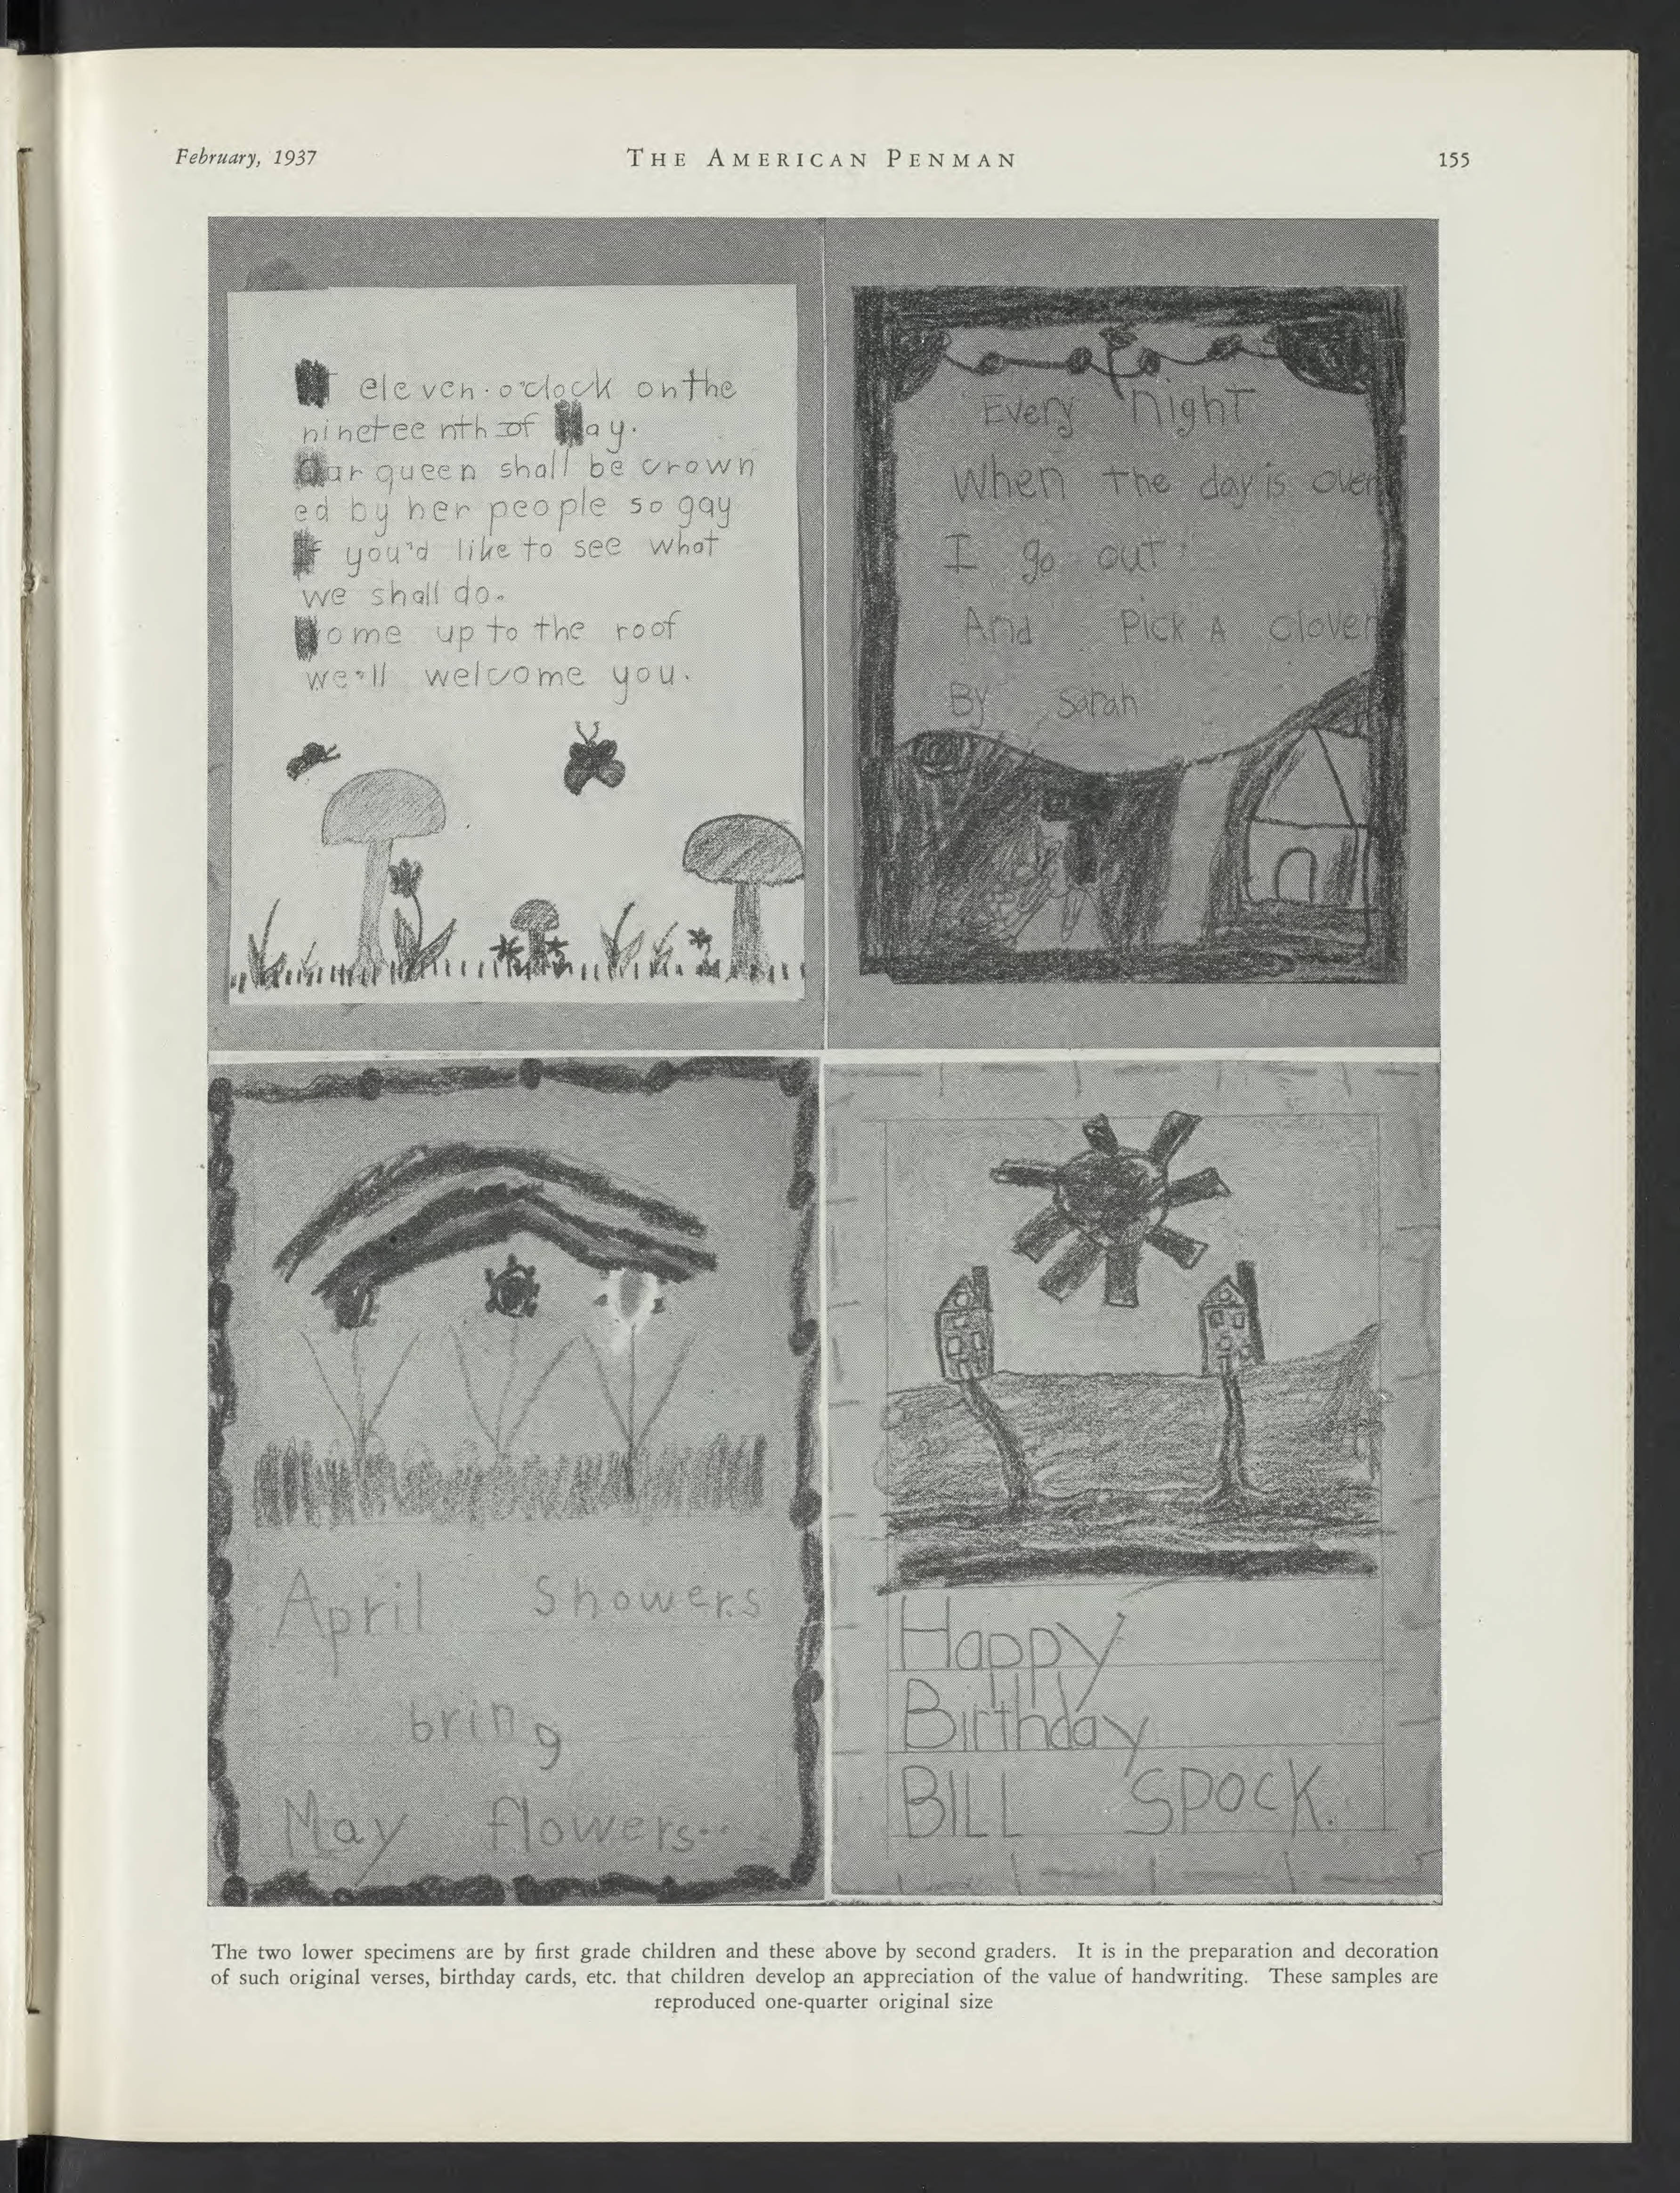 February, 1937
THE AMERICAN PENMAN
155
At eleven o'clock on the
nineteenth of May.
Our queen shall be crown
ed by her people so gay
If you'd like to see what
we shall do.
Come up to the roof
we'll welcome you.
Every night
When the day is over
I go out
And Pick A Clover
By Sarah
April Showers
bring
May flowers..
Happy
Birthday
BILL SPOCK.
The two lower specimens are by first grade children and these above by second graders. It is in the preparation and decoration
of such original verses, birthday cards, etc. that children develop an appreciation of the value of handwriting. These samples are
reproduced one-quarter original size